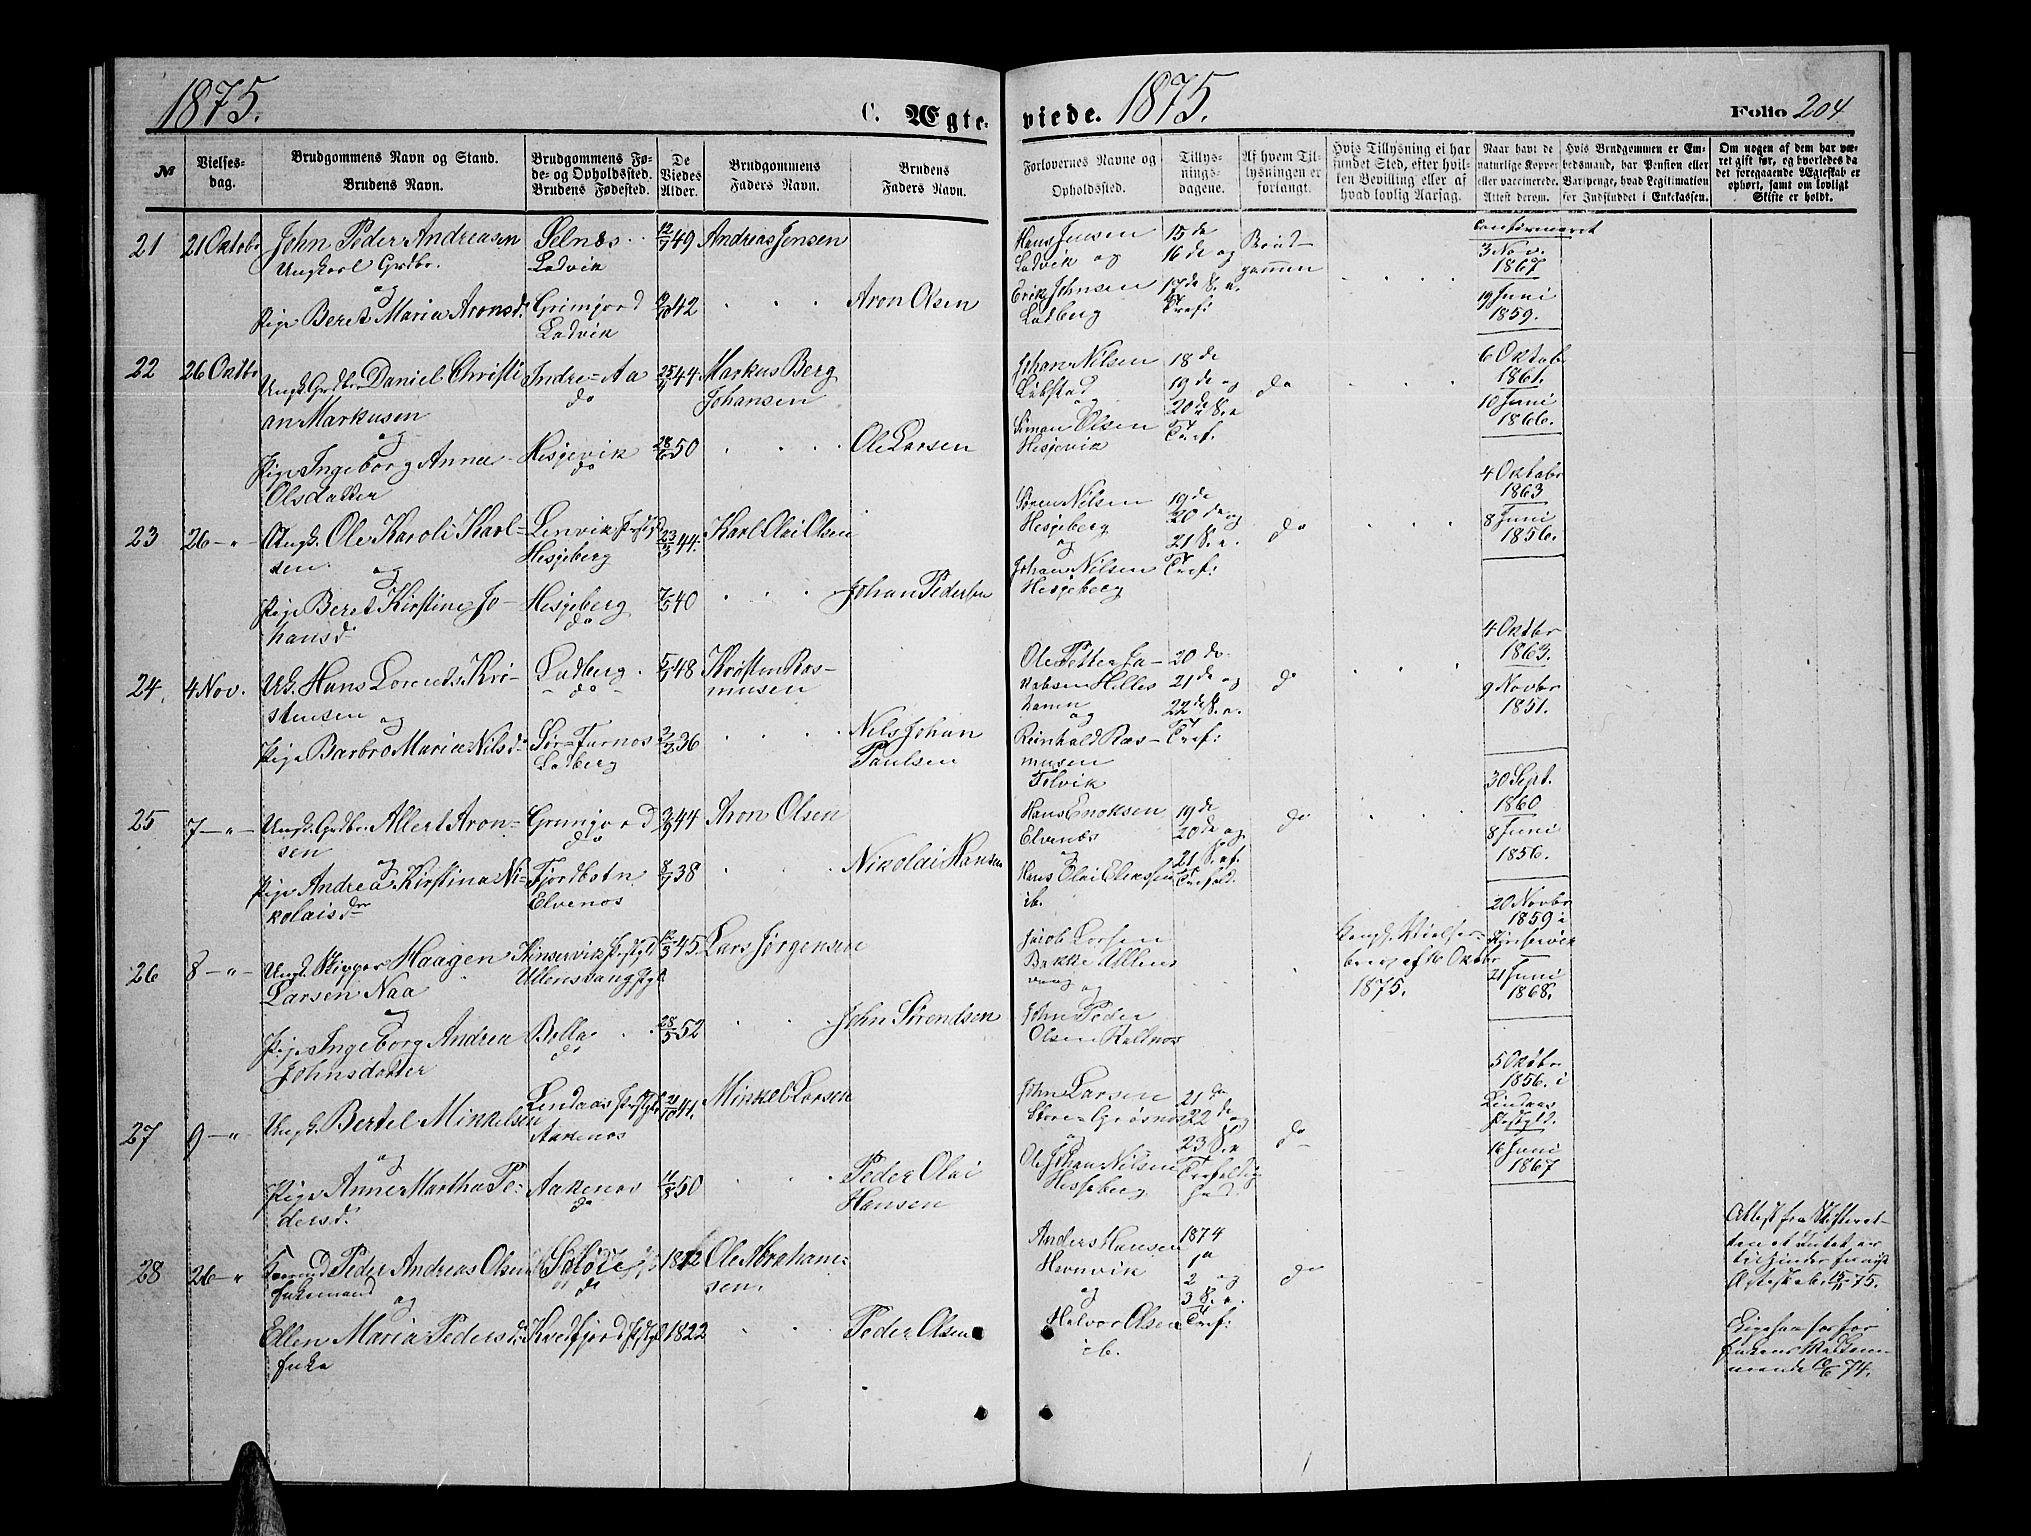 1875.
C. Ægte-
viede. 1875.
Folio 204
№
Vielses-
dag.
Brudgommens Navn og Stand.
Brudens Navn.
Brudgommens Fø-
de- og Opholdssted.
Brudens Fødested.
De
Viedes
Alder.
Brudgommens
Faders Navn.
Brudens
Faders Navn.
Forlovernes Navne og
Opholdssted.
Tillys-
nings-
dagene.
Af hvem Til-
lysningen er
forlangt.
Hvis Tillysning ei har
fundet Sted, efter hvil-
ken Bevilling eller af
hvad lovlig Aarsag.
Naar havt de
naturlige Kopper
eller vaccinerede.
Attest derom.
Hvis Brudgommen er Em-
bedsmand, har Pension eller
Vartpenge, hvad Legitimation
for Indskuddet i Enkekassen.
Om nogen af dem har væ-
ret gift før, og hvorledes da
det foregaaende Ægteskab er
ophørt, samt om lovligt
Skifte er holdt.
21
21 Oktobr
John Peder Andreasen
Ungkarl Grdbr.
og
Pige Beret Maria Aronsd.
Selnæs
Ladvik
Grimjord
Ladvik
12/7 49
42
Andreas Jensen
Aron Olsen
Hans Jensen
Ladvik og
Erik Johnsen
Ladberg
15 de
16 de og
17 de S. e.
Tref:
Brud-
gommen
Confirmeret
3 Nov.
1867
19 Juni
1859.
22
26 Oktbr
Ungk. Grdbr Daniel Christi
an Markusen
og
Pige Ingeborg Anna
Olsdatter
Indre-Aa
do
Hesjevik
do
44
28/6 50
Markus Berg
Johansen
Ole Larsen
Johan Nilsen
Løbstad
og
Simon Olsen
Hesjevik
18 de
19 de og
20 de S. e
Tref.
do
6 Oktobr
1861.
10 Juni
1866.
23
26 - "
Ungk. Ole Karoli Karl-
sen og
Pige Beret Kirstine Jo-
hansd
Lenvik Prstgd
Hesjeberg
Hesjeberg
do
23/3 44.
7/5 40
Karl Olai Olsen
Johan Pedersen
Søren Nilsen
Hesjeberg
og
Johan Nilsen
Hesjeberg
19 de
20 de og
21 S. e.
Tref:
do
4 Oktobr
1863
8 Juni
1856.
24.
4 Nov.
UG. Hans Lorents Kri-
stensen og
Pige Barbro Maria Nilsd
Ladberg
- do -
Sør-Furnes
Ladberg
48
36
Kristen Ras-
musen
Nils Johan
Paulsen
Ole Petter Ja-
kobsen Helles
hamn
og
Reinhold Ras-
musen
Tolvik
20 de
21 de og
22 de S. e.
Tref:
do
4 Oktbr
1863.
9 Novbr
1851.
25
7 - " -
Ungk. Grdbr Albert Aron-
sen og
Pige Andrea Kirstina Ni-
kolaisdtr
Grimjord
do
Fjordbotn
Elvenes
44
38
Aron Olsen
Nikolai Hansen
Hans Enoksen
Elvenæs
og
Hans Olai Eliassen
ib.
19 de
20 de og
21 S. ef.
Trefold.
do
30 Sept.
1860
8 Juni
1856.
26
8 - " -
Ungk. Skipper Haagen
Larsen Naa
og
Pige Ingeborg Andrea
Johnsdatter
Kinservik Prstgd
Ullensvang Prstgd.
Bolla
do
12/3 45.
28/5 52
Lars Jørgensen
John Sørensen
Jacob Larsen
Bakke Ullens
vang og
John Peder
Olsen Kaltnes
Kongl. Vielses-
brev af 16 Oktbr
1875.
20 Novbr
1859 i
Kinservik
21 Juni
1868.
27
9 - "
Ungk. Bertel Mikkelsen
og
Pige Anne Martha Pe-
dersd.
Lindaas Prstgd
Aakenes
Aakenes
do
21/10 41.
50
Mikkel Larsen
Peder Olai
Hansen
John Larsen
Store-Grøsnes
og
Ole Johan Nilsen
Hesjeberg
21 de
22 de og
23 S. e
Trefoldig
hed.
do
5 Oktbr
1856. i
Lindaas
Prstgjld.
16 Juni
1867
28
26 - "
Peder Andreas Olsen
Enkemand
og
Ellen Maria Pedersd.
Enke
do
Kvedfjord Prstgd
1822
Ole Abraham-
sen.
Peder Olsen
Anders Hansen
Havnvik
og
Halvor Olsen
ib.
1874
2 og
3 S. e.
Tref:
do
Attest fra Skifteret-
ten
Ægteskab. 75.
Enkens
74.